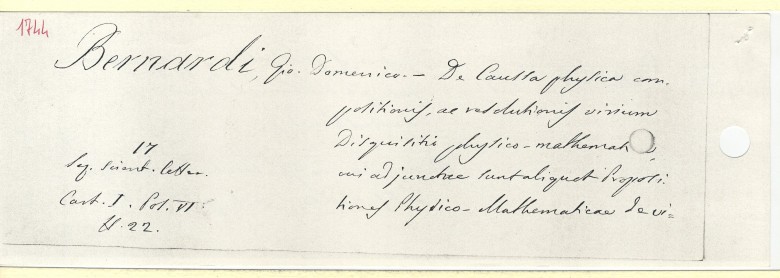 1744
Bernardi, Gio. Domenico. — De Caussa physica com-
positionis, ac resolutionis virium
Disquisitio physico-mathemat
cui adjunctae sunt aliquot Proposi-
tiones Physico-Mathematicae de vi=
17
Seg. Scient. Letter.
Cart. I. Pos. VI.
N. 22.